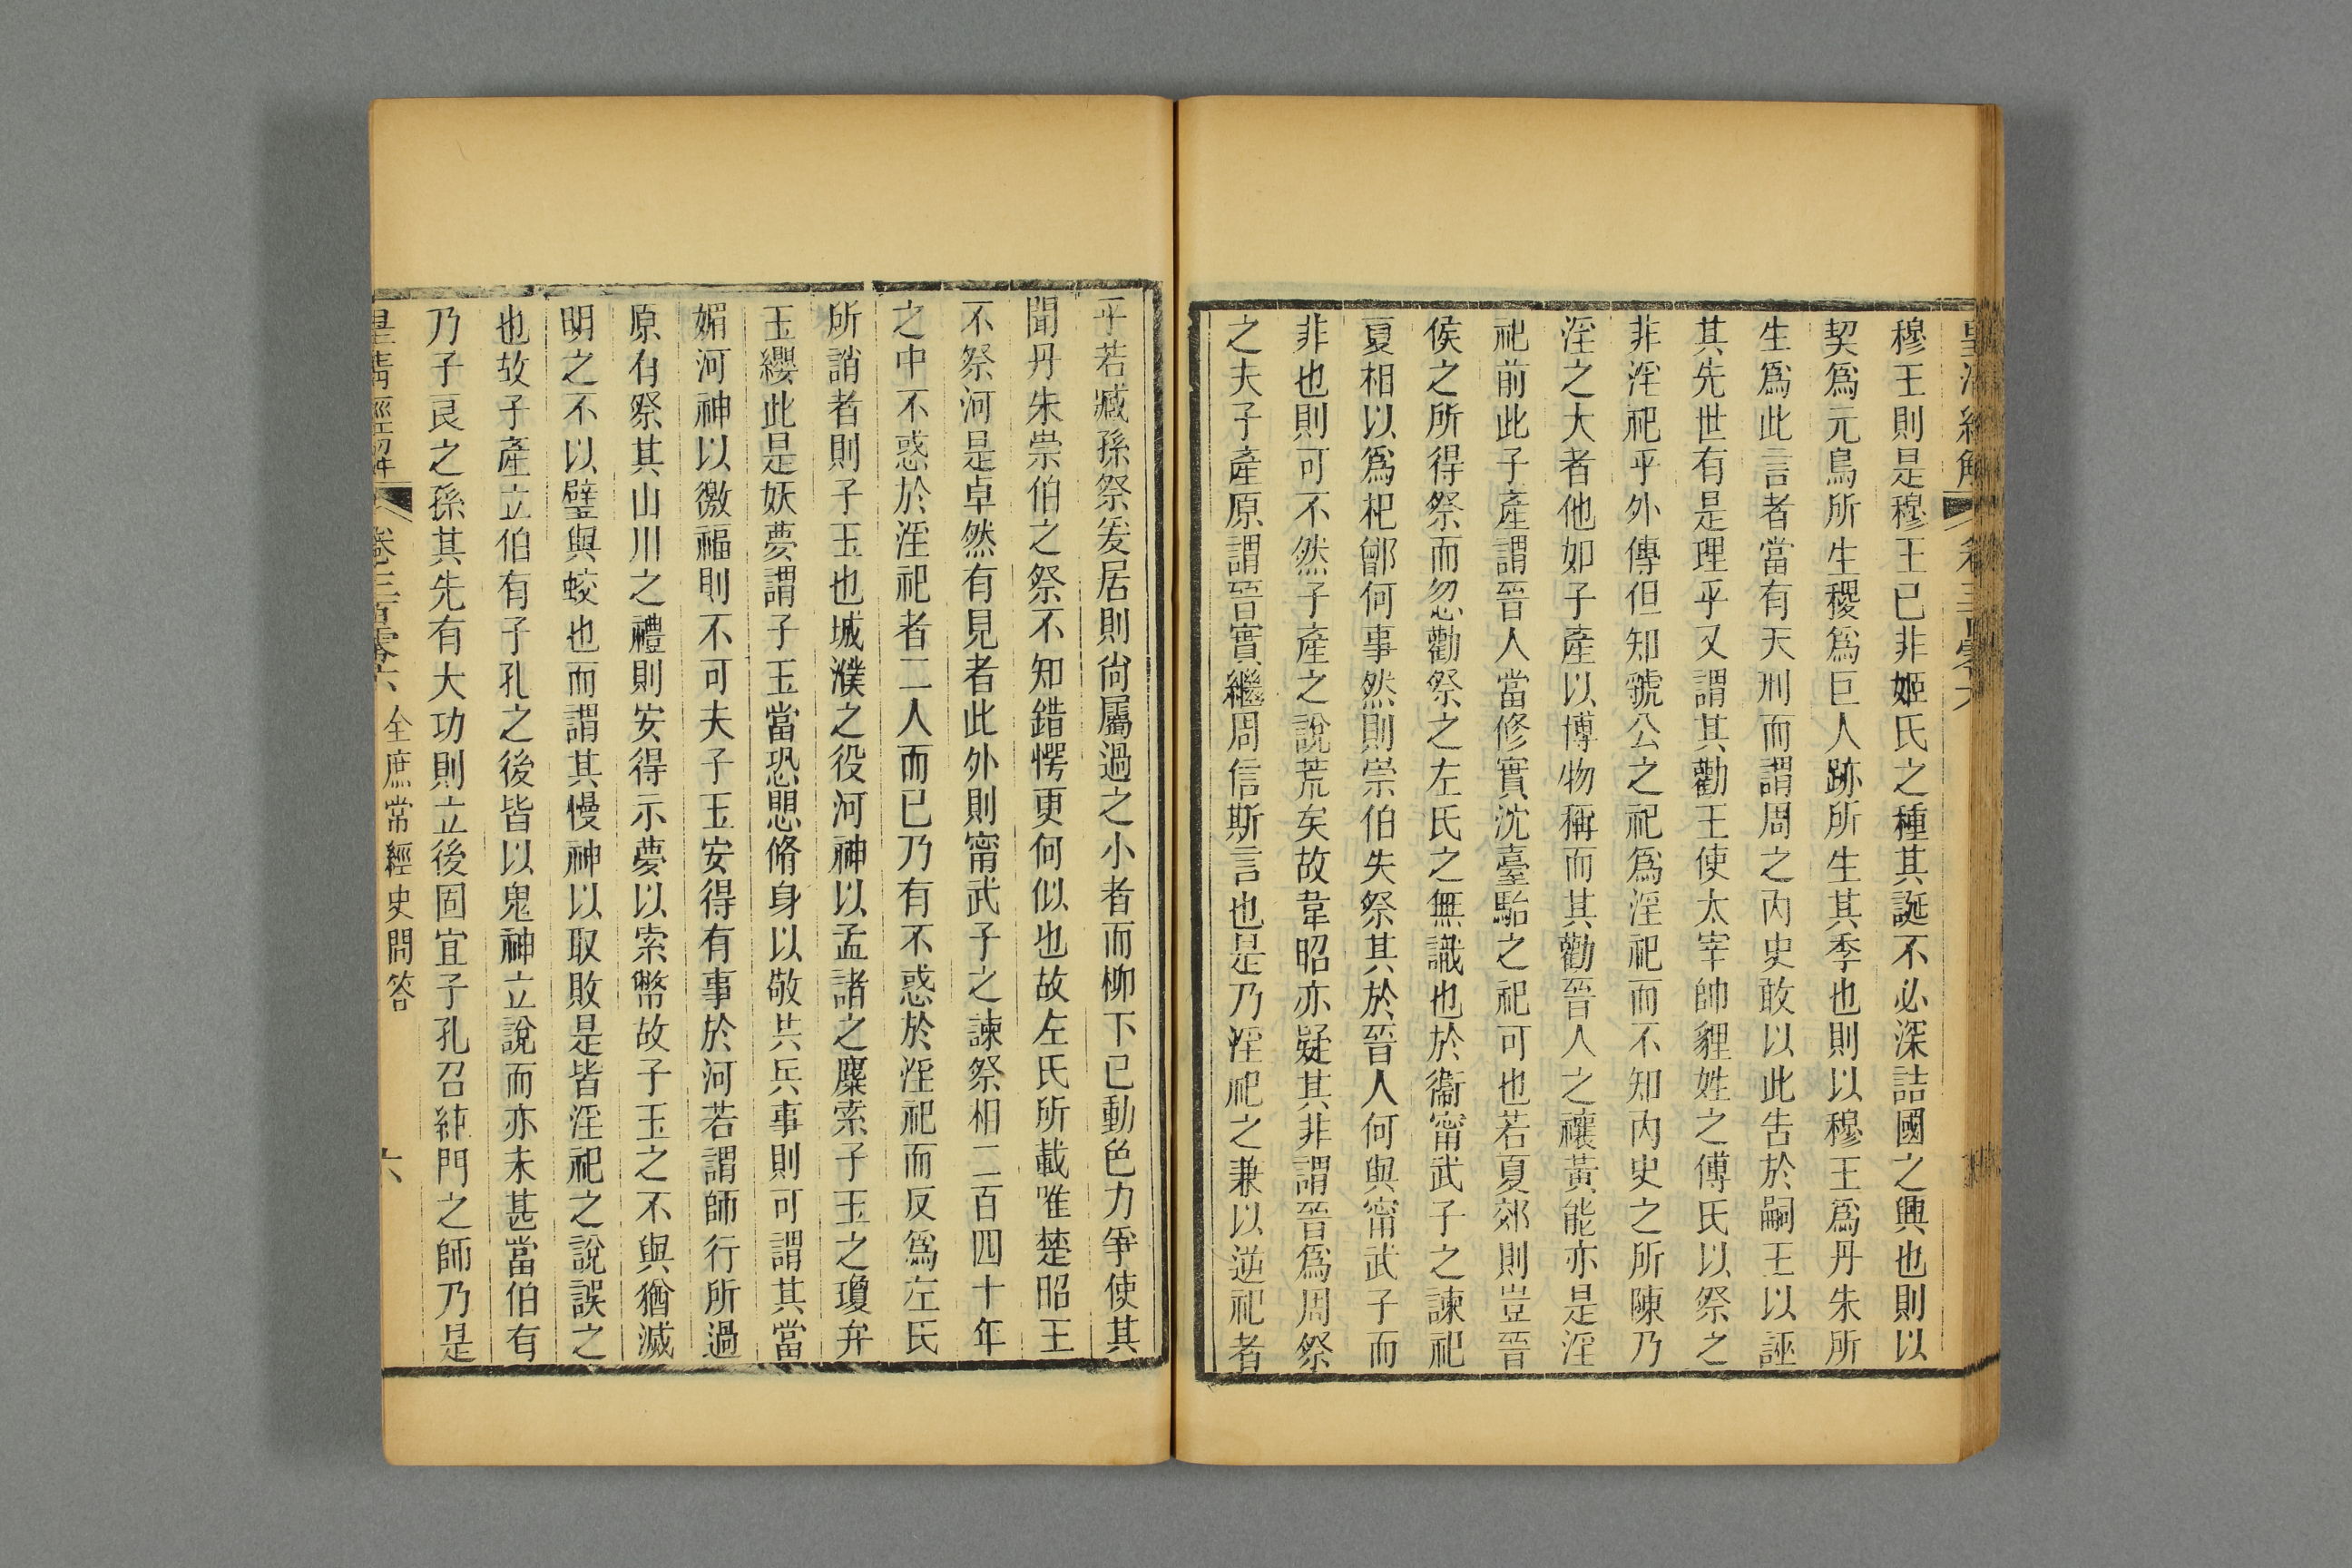 皇清經解 卷三百零六
穆王則是穆王已非姬氏之種其誕不必深詰國之興也則以
契爲元鳥所生稷爲巨人跡所生其季也則以穆王爲丹朱所
生爲此言者當有天刑而謂周之內史敢以此告於嗣王以誣
其先世有是理乎又謂其勸王使太宰帥貍姓之傅氏以祭之
非淫祀乎外傳但知虢公之祀爲淫祀而不知內史之所陳乃
淫之大者他如子產以博物稱而其勸晉人之禳黃能亦是淫
祀前此子產謂晉人當修實沈臺駘之祀可也若夏郊則豈晉
侯之所得祭而忽勸祭之左氏之無識也於衞甯武子之諫祀
夏相以爲杞鄫何事然則崇伯失祭其於晉人何與甯武子而
非也則可不然子產之說荒矣故韋昭亦疑其非謂晉爲周祭
之夫子產原謂晉實繼周信斯言也是乃淫祀之兼以逆祀者
乎若臧孫祭爰居則尙屬過之小者而柳下已動色力爭使其
聞丹朱崇伯之祭不知錯愕更何似也故左氏所載唯楚昭王
不祭河是卓然有見者此外則甯武子之諫祭相二百四十年
之中不惑於淫祀者二人而已乃有不惑於淫祀而反爲左氏
所誚者則子玉也城濮之役河神以孟諸之麋索子玉之瓊弁
玉纓此是妖夢謂子玉當恐思脩身以敬共兵事則可謂其當
媚河神以徼福則不可夫子玉安得有事於河若謂師行所過
原有祭其山川之禮則安得示夢以索幣故子玉之不與猶滅
明之不以璧與蛟也而謂其慢神以取敗是皆淫祀之說誤之
也故子產立伯有子孔之後皆以鬼神立說而亦未甚當伯有
乃子良之孫其先有大功則立後固宜子孔召純門之師乃是
皇淸經解 卷三百零六 全庶常經史問答 六